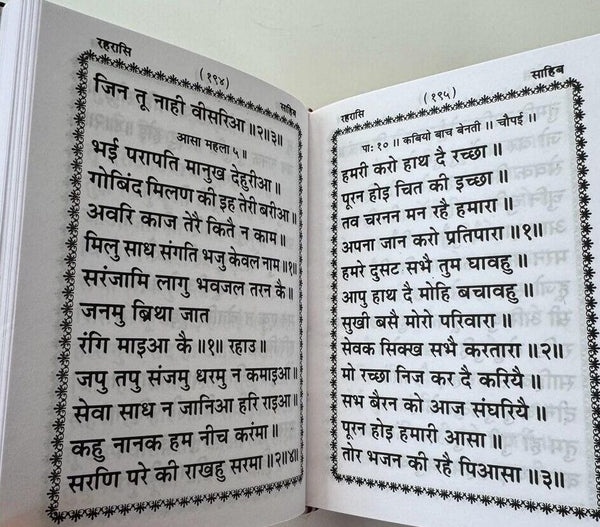 रहरासि
(१९४)
साहिब
जिन तू नाही वीसरिआ॥२॥३॥
आसा महला ५॥
भई परापति मानुख देहुरीआ॥
गोबिंद मिलण की इह तेरी बरीआ॥
अवरि काज तेरै कितै न काम॥
मिलु साध संगति भजु केवल नाम॥१॥
सरंजामि लागु भवजल तरन कै॥
जनमु ब्रिथा जात
रंगि माइआ कै॥१॥ रहाउ॥
जपु तपु संजमु धरमु न कमाइआ॥
सेवा साध न जानिआ हरि राइआ॥
कहु नानक हम नीच करंमा॥
सरणि परे की राखहु सरमा॥२॥४॥
रहरासि
(१९५)
साहिब
पा: १०॥ कबियो बाच बेनती॥ चौपई॥
हमरी करो हाथ दै रच्छा॥
पूरन होइ चित की इच्छा॥
तव चरनन मन रहै हमारा॥
अपना जान करो प्रतिपारा॥१॥
हमरे दुसट सभै तुम घावहु॥
आपु हाथ दै मोहि बचावहु॥
सुखी बसै मोरो परिवारा॥
सेवक सिक्ख सभै करतारा॥२॥
मो रच्छा निज कर दै करियै॥
सभ बैरन को आज संघरियै॥
पूरन होइ हमारी आसा॥
तोर भजन की रहै पिआसा॥३॥